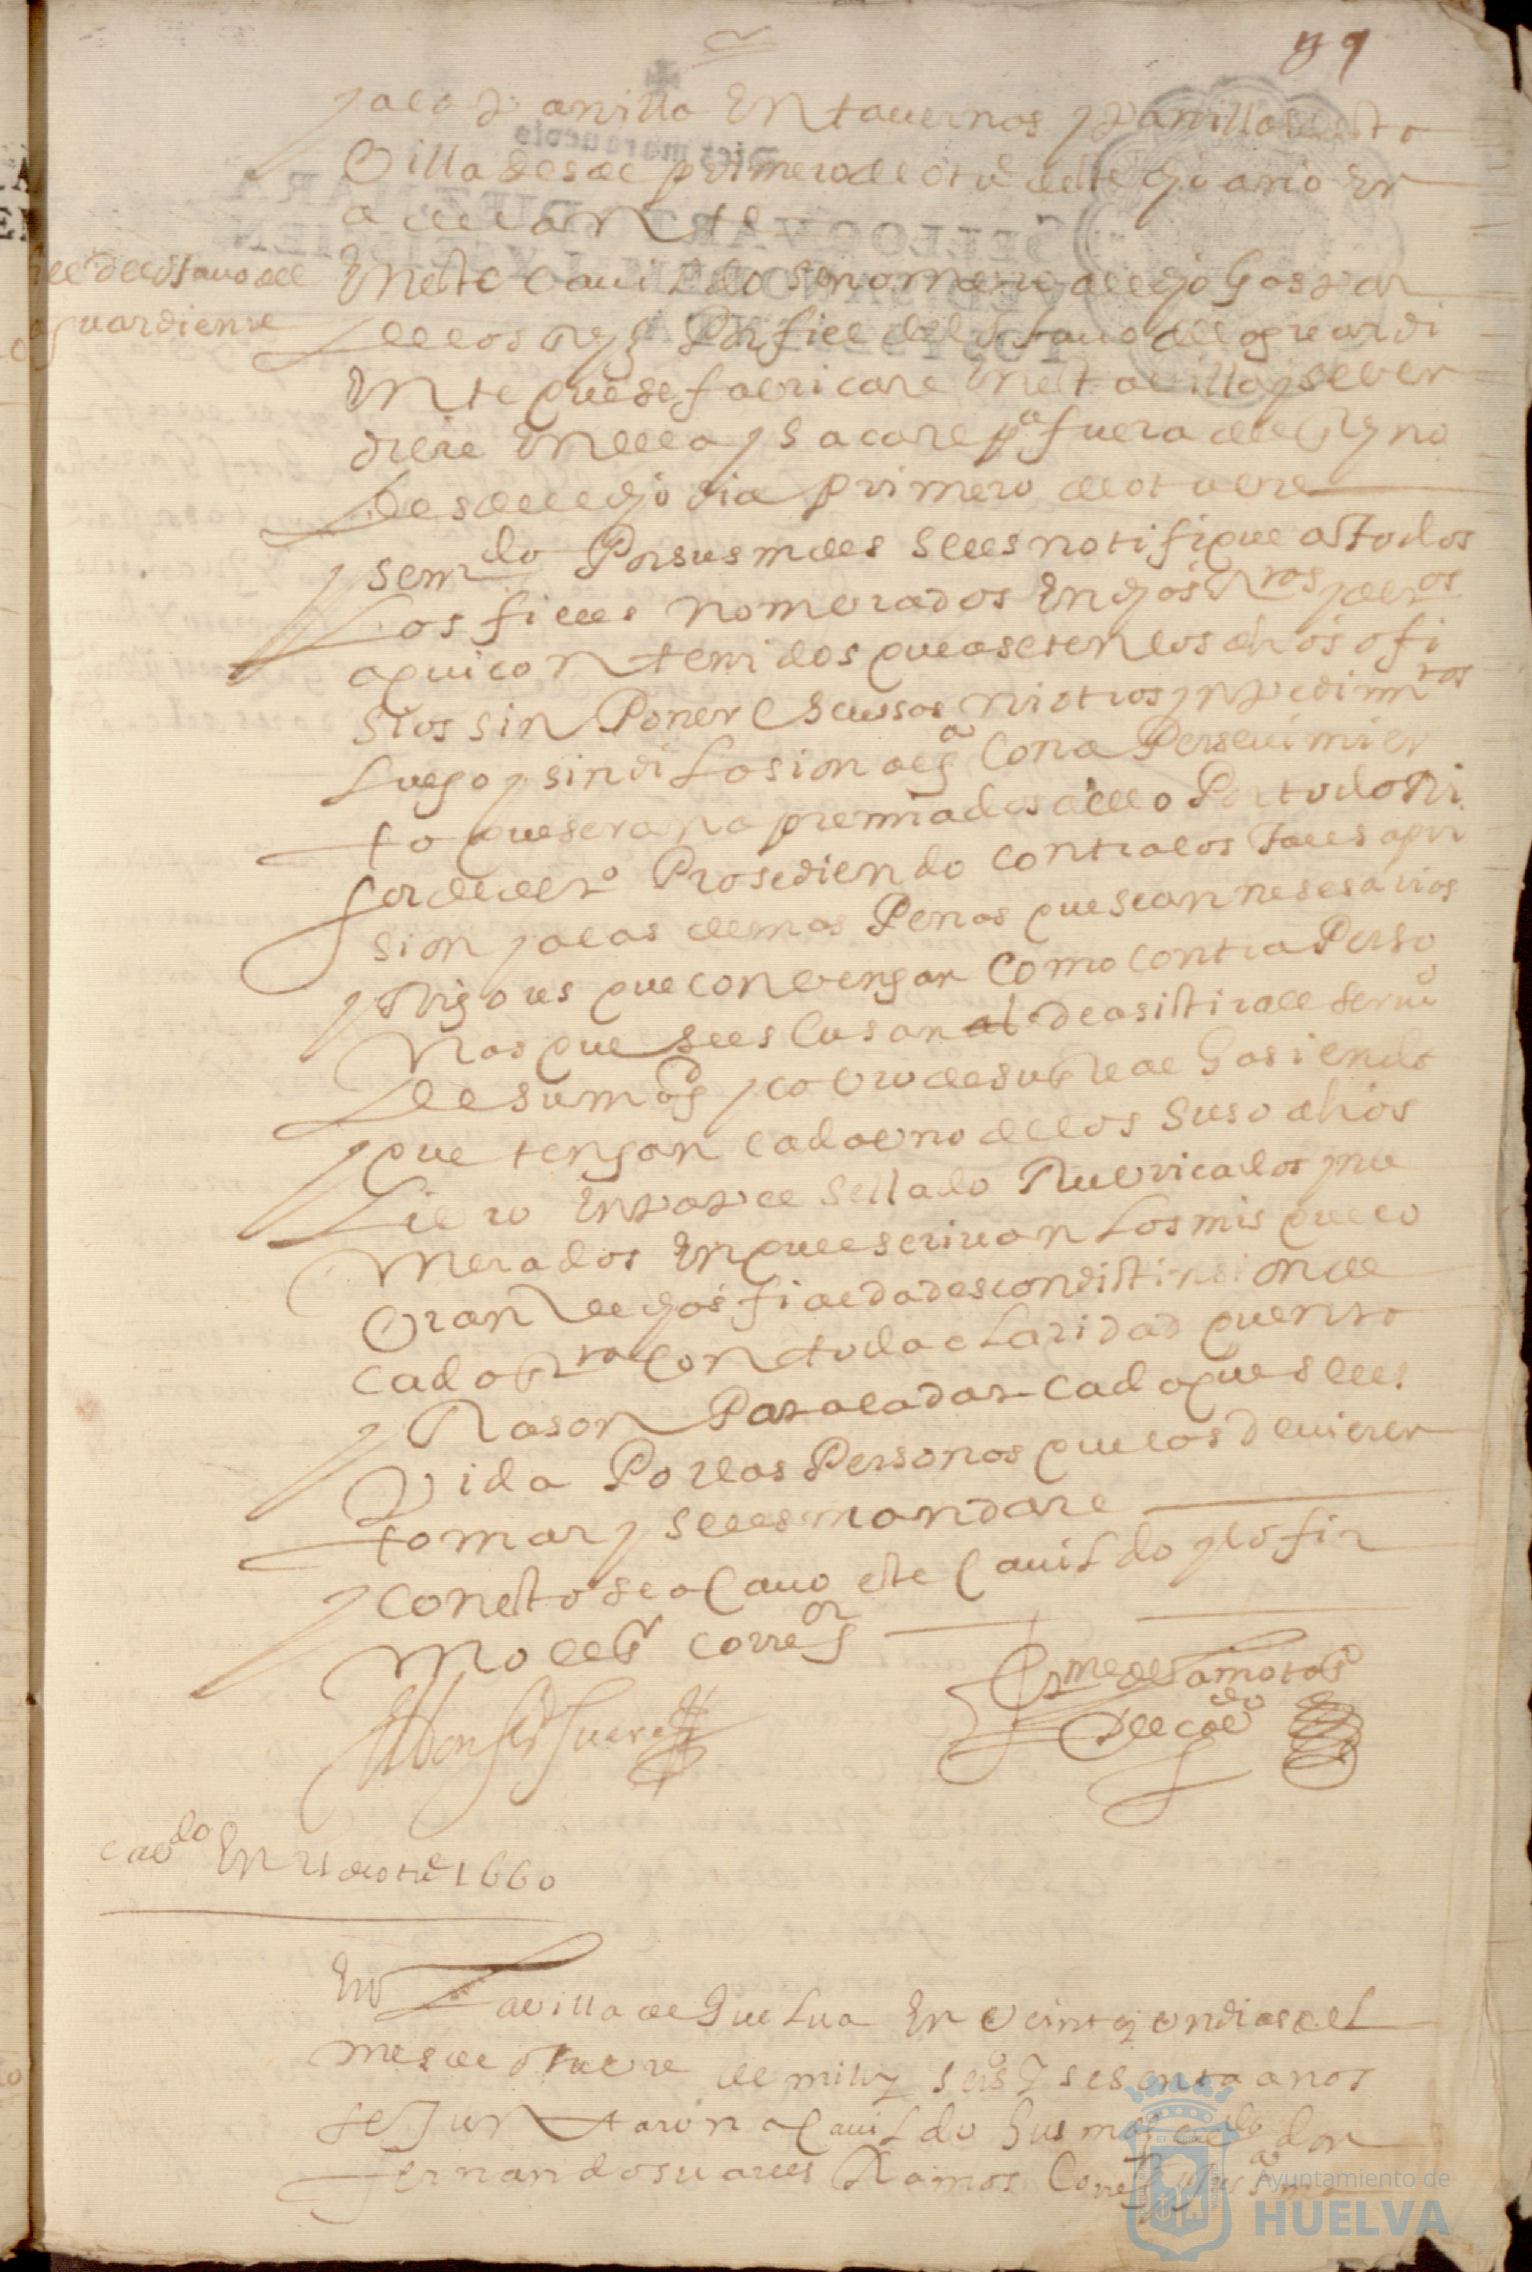 89
y a la Panilla En tauernas y Panillas desta
Villa desde primero de otue deste dho año En
adelante
fiel del otauo del aguardiente
En este cauildo se nombro al dho Gaspar
de los rrys Por fiel del otauo del aguardi
Ente que se fabricare En esta villa y se ven
diere En ella y sacare pa fuera del Reyno
desde el dho dia primero de otubre
y se mdo Por sus mdes se les notifique a todos
Los fieles nombrados En dhos Rtas y dros
aqui contenidos que aseten los dhos ofi
sios sin Poner Escussas ni otros ynpedimtos
Luego y sin dilasion alga Con aPersevimien
to que seran apremiados a ello Por todo Ri
for de dro Prosediendo contra los tales a pri
sion y a las demas Penas que sean nesesarias
y Rigores que convengan Como contra Perso
Nas que se escusan al de asistir al seruo
de su magd y cobro de su Rl hasienda
y que tengan cada uno de los suso dhos
Libro En papel sellado Rubricados y nu
merados En que escriuan Los mrs que co
bran de dhas fialdades con distinsion de
cada Rta Con toda claridad quenta
y Rason Para la dar cada que se les
Pida Por las Personas que las devieren
tomar y se les mandare
y con esto se acauo este Cauildo y lo fir
mo el sr corregor
Alonso Suares
Germe de la mota
del cavdo
cavdo En 21 de otue 1660
En La villa de Guelua En veinte y un dias del
mes de otubre de mill y seiss y sesenta años
se Juntaron a Cauildo Sus mds el ldo don
fernando suares Ramos Corregr y Justa mor
Ayuntamiento de
HUELVA